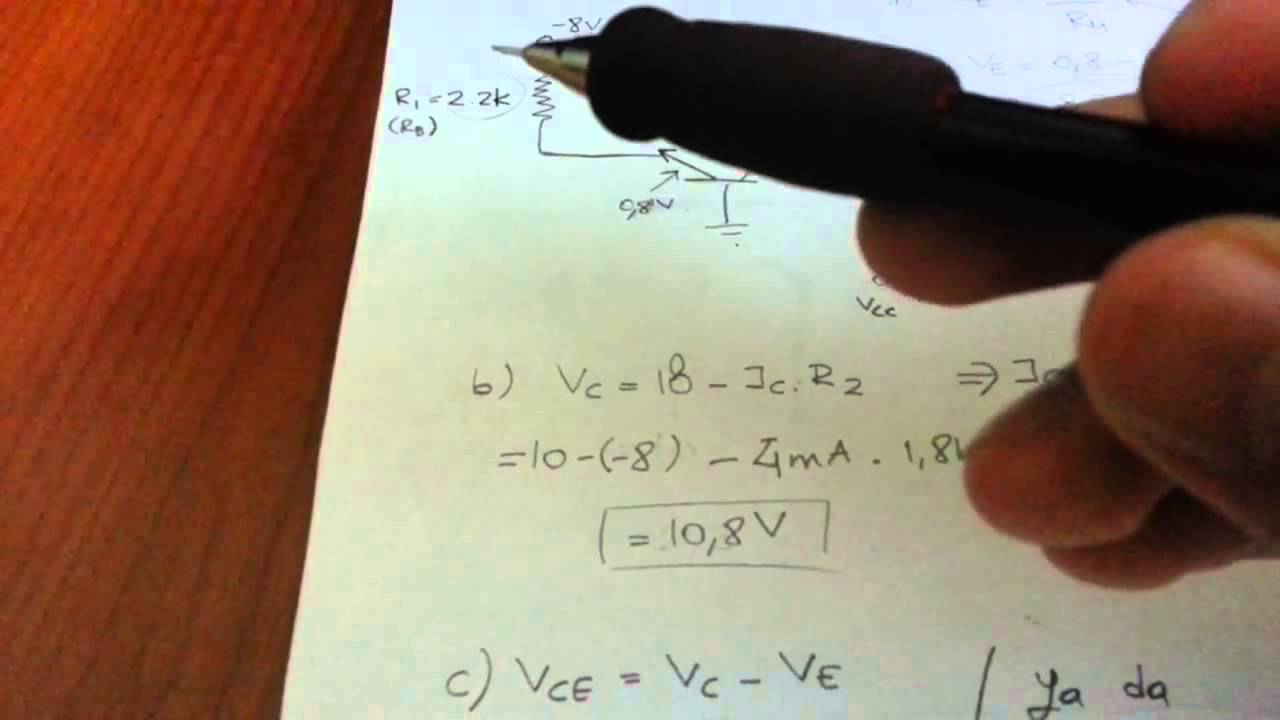 -8V
R₁ = 2.2k
(RB)
0,8V
VE = 0,8 -
VCC
b) VC = 18 - IC. R2 ⇒
= 10 - (-8) - 4mA . 1,8
= 10,8 V
c) VCE = VC - VE / ya da